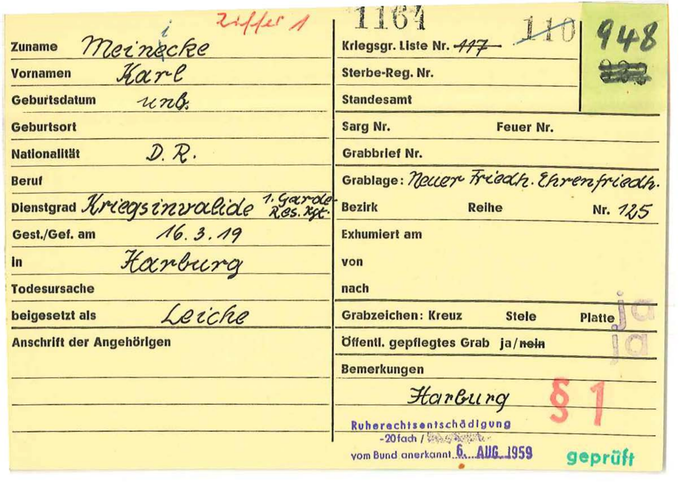 Ziffer 1
1164
110
948
Zuname Meinecke
i
Vornamen Karl
Geburtsdatum unb.
Geburtsort
Nationalität D. R.
Beruf
Dienstgrad Kriegsinvalide 1. Garde-
Res. Rgt.
Gest./Gef. am 16. 3. 19
in Harburg
Todesursache
beigesetzt als Leiche
Anschrift der Angehörigen
Kriegsgr. Liste Nr. 117
Sterbe-Reg. Nr.
Standesamt
Sarg Nr. Feuer Nr.
Grabbrief Nr.
Grablage: Neuer Friedh. Ehrenfriedh.
Bezirk Reihe Nr. 125
Exhumiert am
von
nach
Grabzeichen: Kreuz Stele Platte ja
Öffentl. gepflegtes Grab ja/nein ja
Bemerkungen
Harburg
§ 1
Ruherechtsentschädigung
-20fach /
vom Bund anerkannt 6. AUG. 1959
geprüft